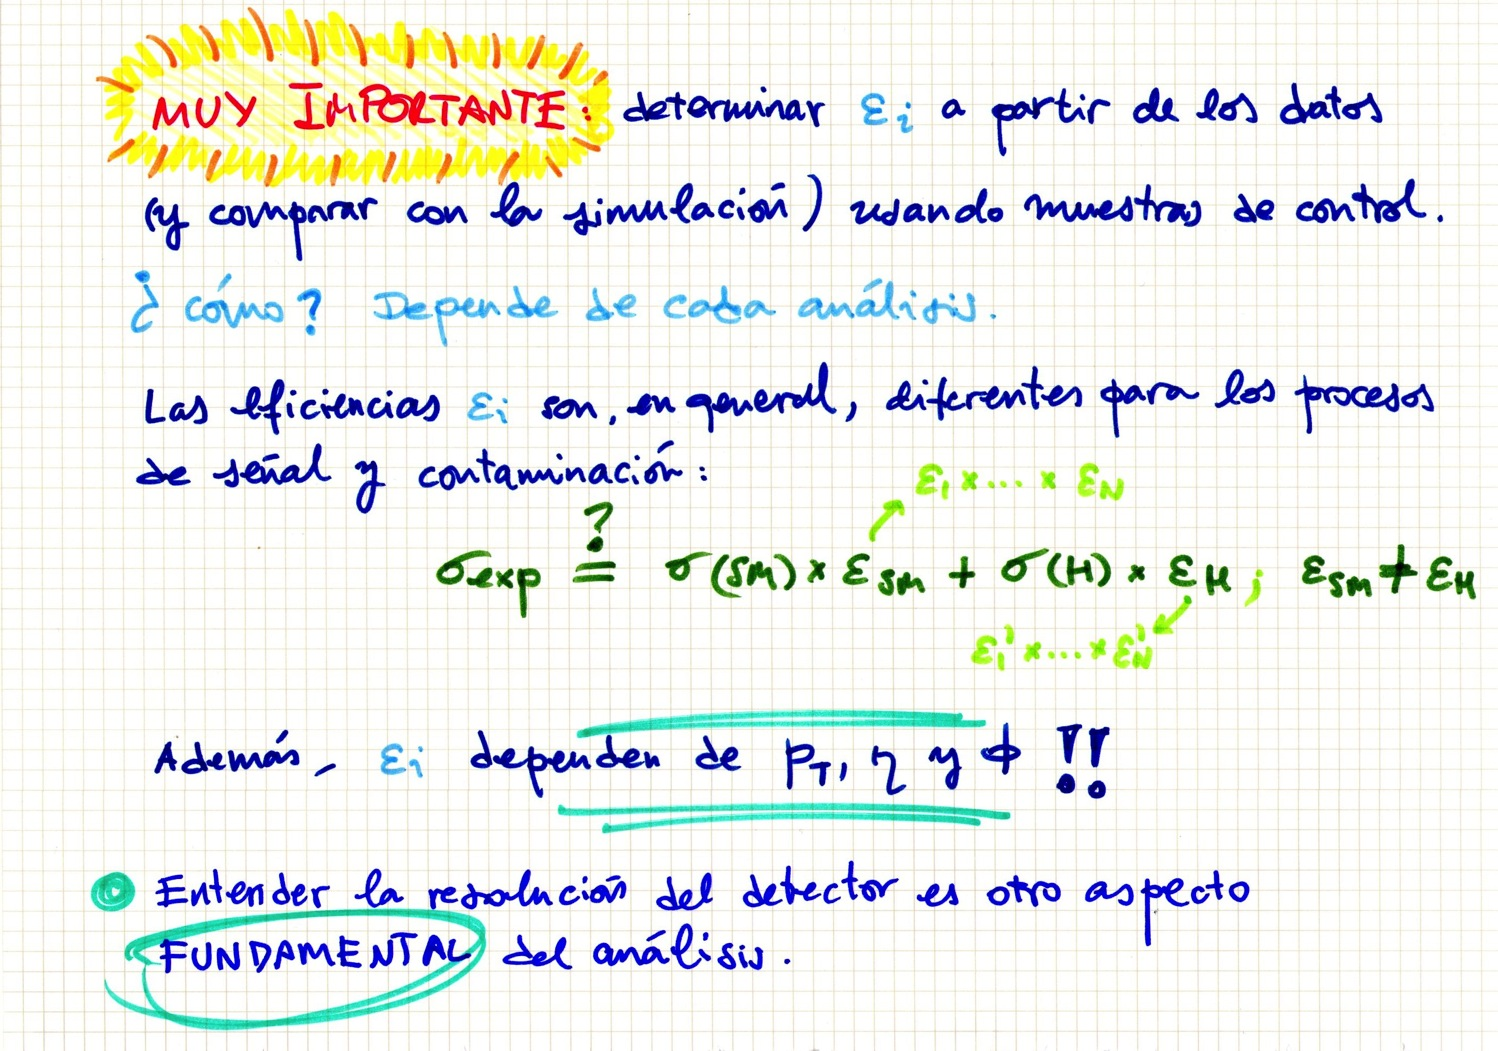 MUY IMPORTANTE: determinar εi a partir de los datos
(y comparar con la simulación) usando muestras de control.
¿cómo? Depende de cada análisis.
Las eficiencias εi son, en general, diferentes para los procesos
de señal y contaminación:
ε1 × ... × εN
?
σexp = σ(SM) × εSM + σ(H) × εH ; εSM ≠ εH
ε1' × ... × εN'
Además, εi dependen de pT, η y ϕ !!
Entender la resolución del detector es otro aspecto
FUNDAMENTAL del análisis.